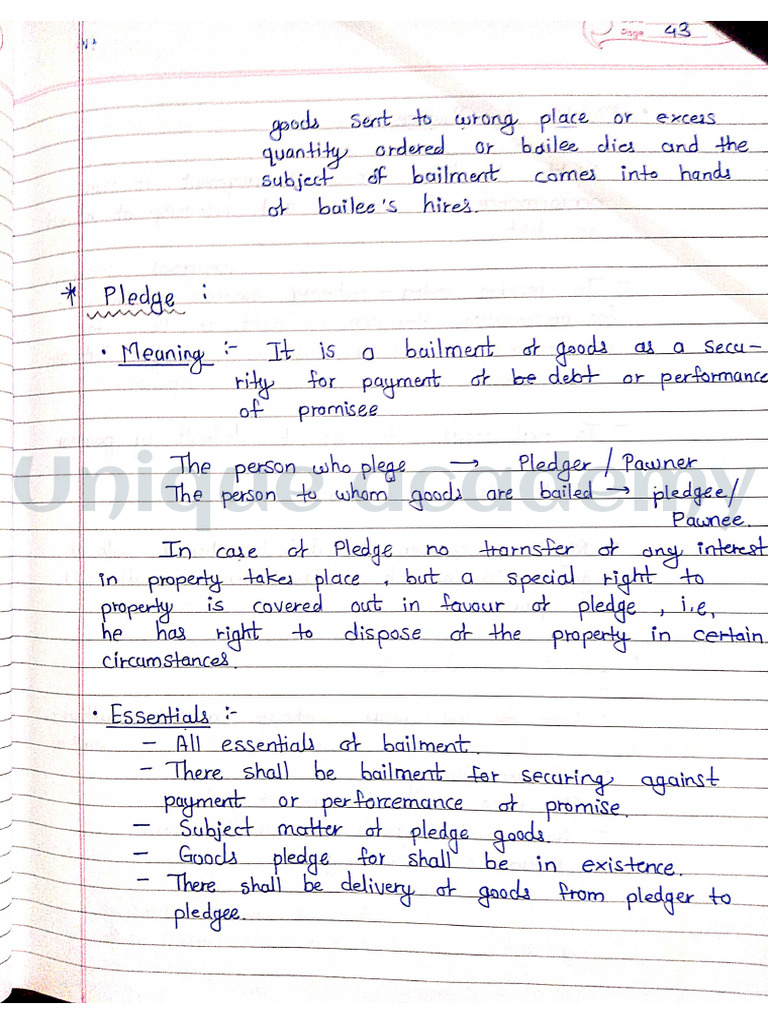 Page 43
goods sent to wrong place or excess
quantity ordered or bailee dies and the
subject of bailment comes into hands
of bailee's hires.
* Pledge :
• Meaning :- It is a bailment of goods as a secu-
rity for payment of be debt or performance
of promisee
The person who plege → Pledger / Pawner
The person to whom goods are bailed → pledgee/
Pawnee.
Unique academy
In case of Pledge no transfer of any interest
in property takes place, but a special right to
property is covered out in favour of pledge, i.e,
he has right to dispose of the property in certain
circumstances.
• Essentials :-
- All essentials of bailment.
- There shall be bailment for securing against
payment or perforcemance of promise.
- Subject matter of pledge goods.
- Goods pledge for shall be in existence.
- There shall be delivery of goods from pledger to
pledgee.